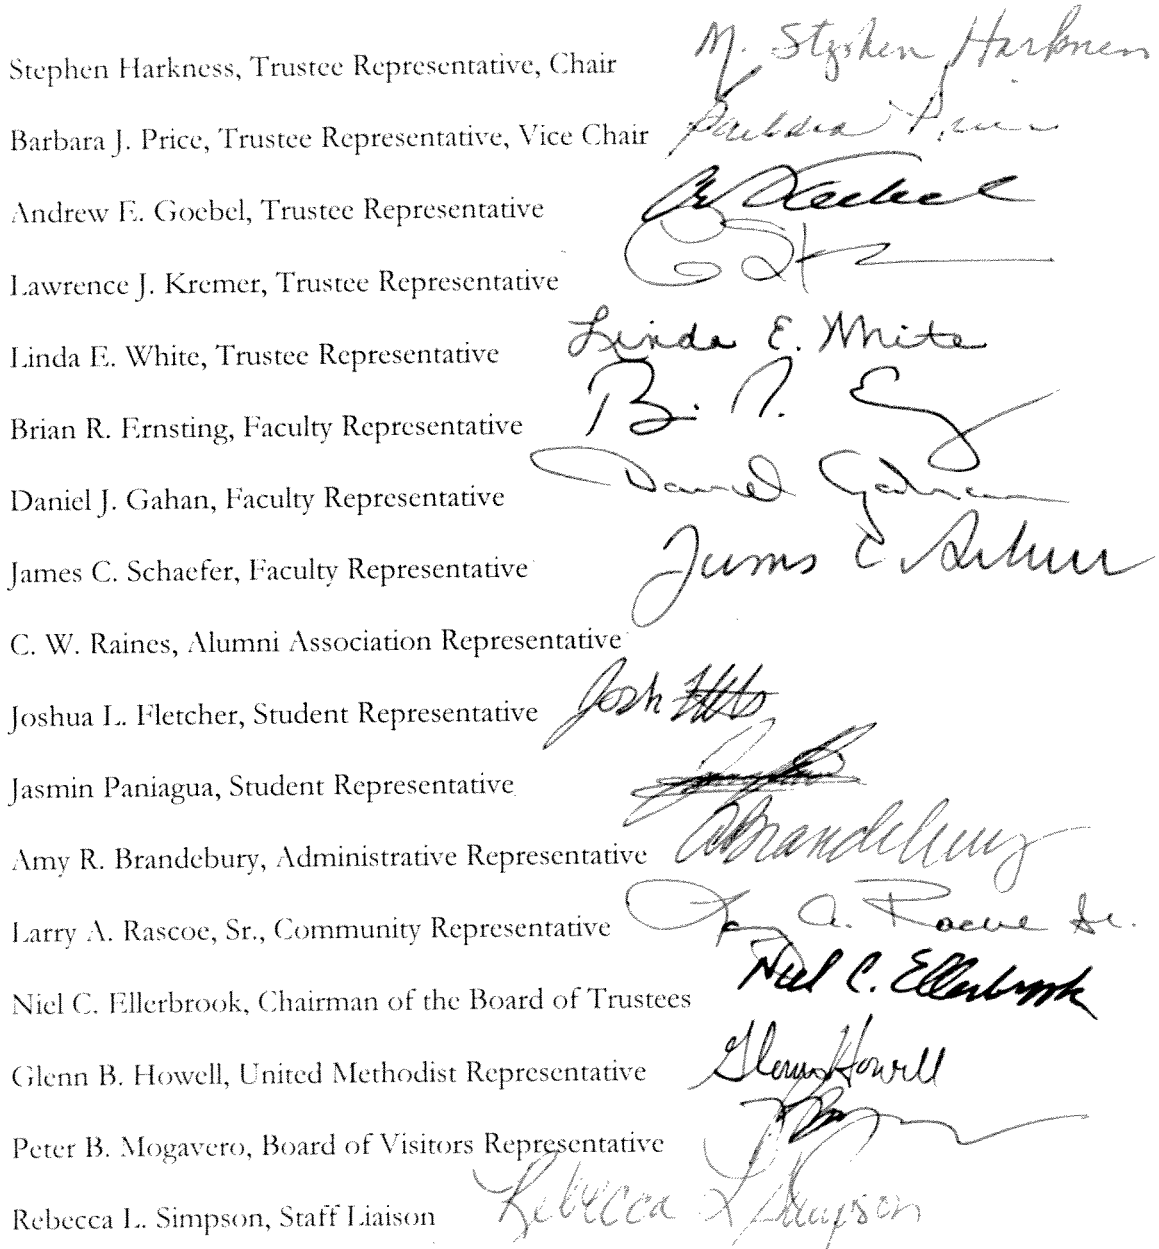 Stephen Harkness, Trustee Representative, Chair M. Stephen Harkness
Barbara J. Price, Trustee Representative, Vice Chair Barbara Price
Andrew E. Goebel, Trustee Representative
Lawrence J. Kremer, Trustee Representative
Linda E. White, Trustee Representative Linda E. White
Brian R. Ernsting, Faculty Representative
Daniel J. Gahan, Faculty Representative Daniel Gahan
James C. Schaefer, Faculty Representative James C.
C. W. Raines, Alumni Association Representative
Joshua L. Fletcher, Student Representative Josh
Jasmin Paniagua, Student Representative
Amy R. Brandebury, Administrative Representative ABrandebury
Larry A. Rascoe, Sr., Community Representative A. Rascoe Sr.
Niel C. Ellerbrook, Chairman of the Board of Trustees Niel C. Ellerbrook
Glenn B. Howell, United Methodist Representative Glenn Howell
Peter B. Mogavero, Board of Visitors Representative
Rebecca L. Simpson, Staff Liaison Rebecca L Simpson